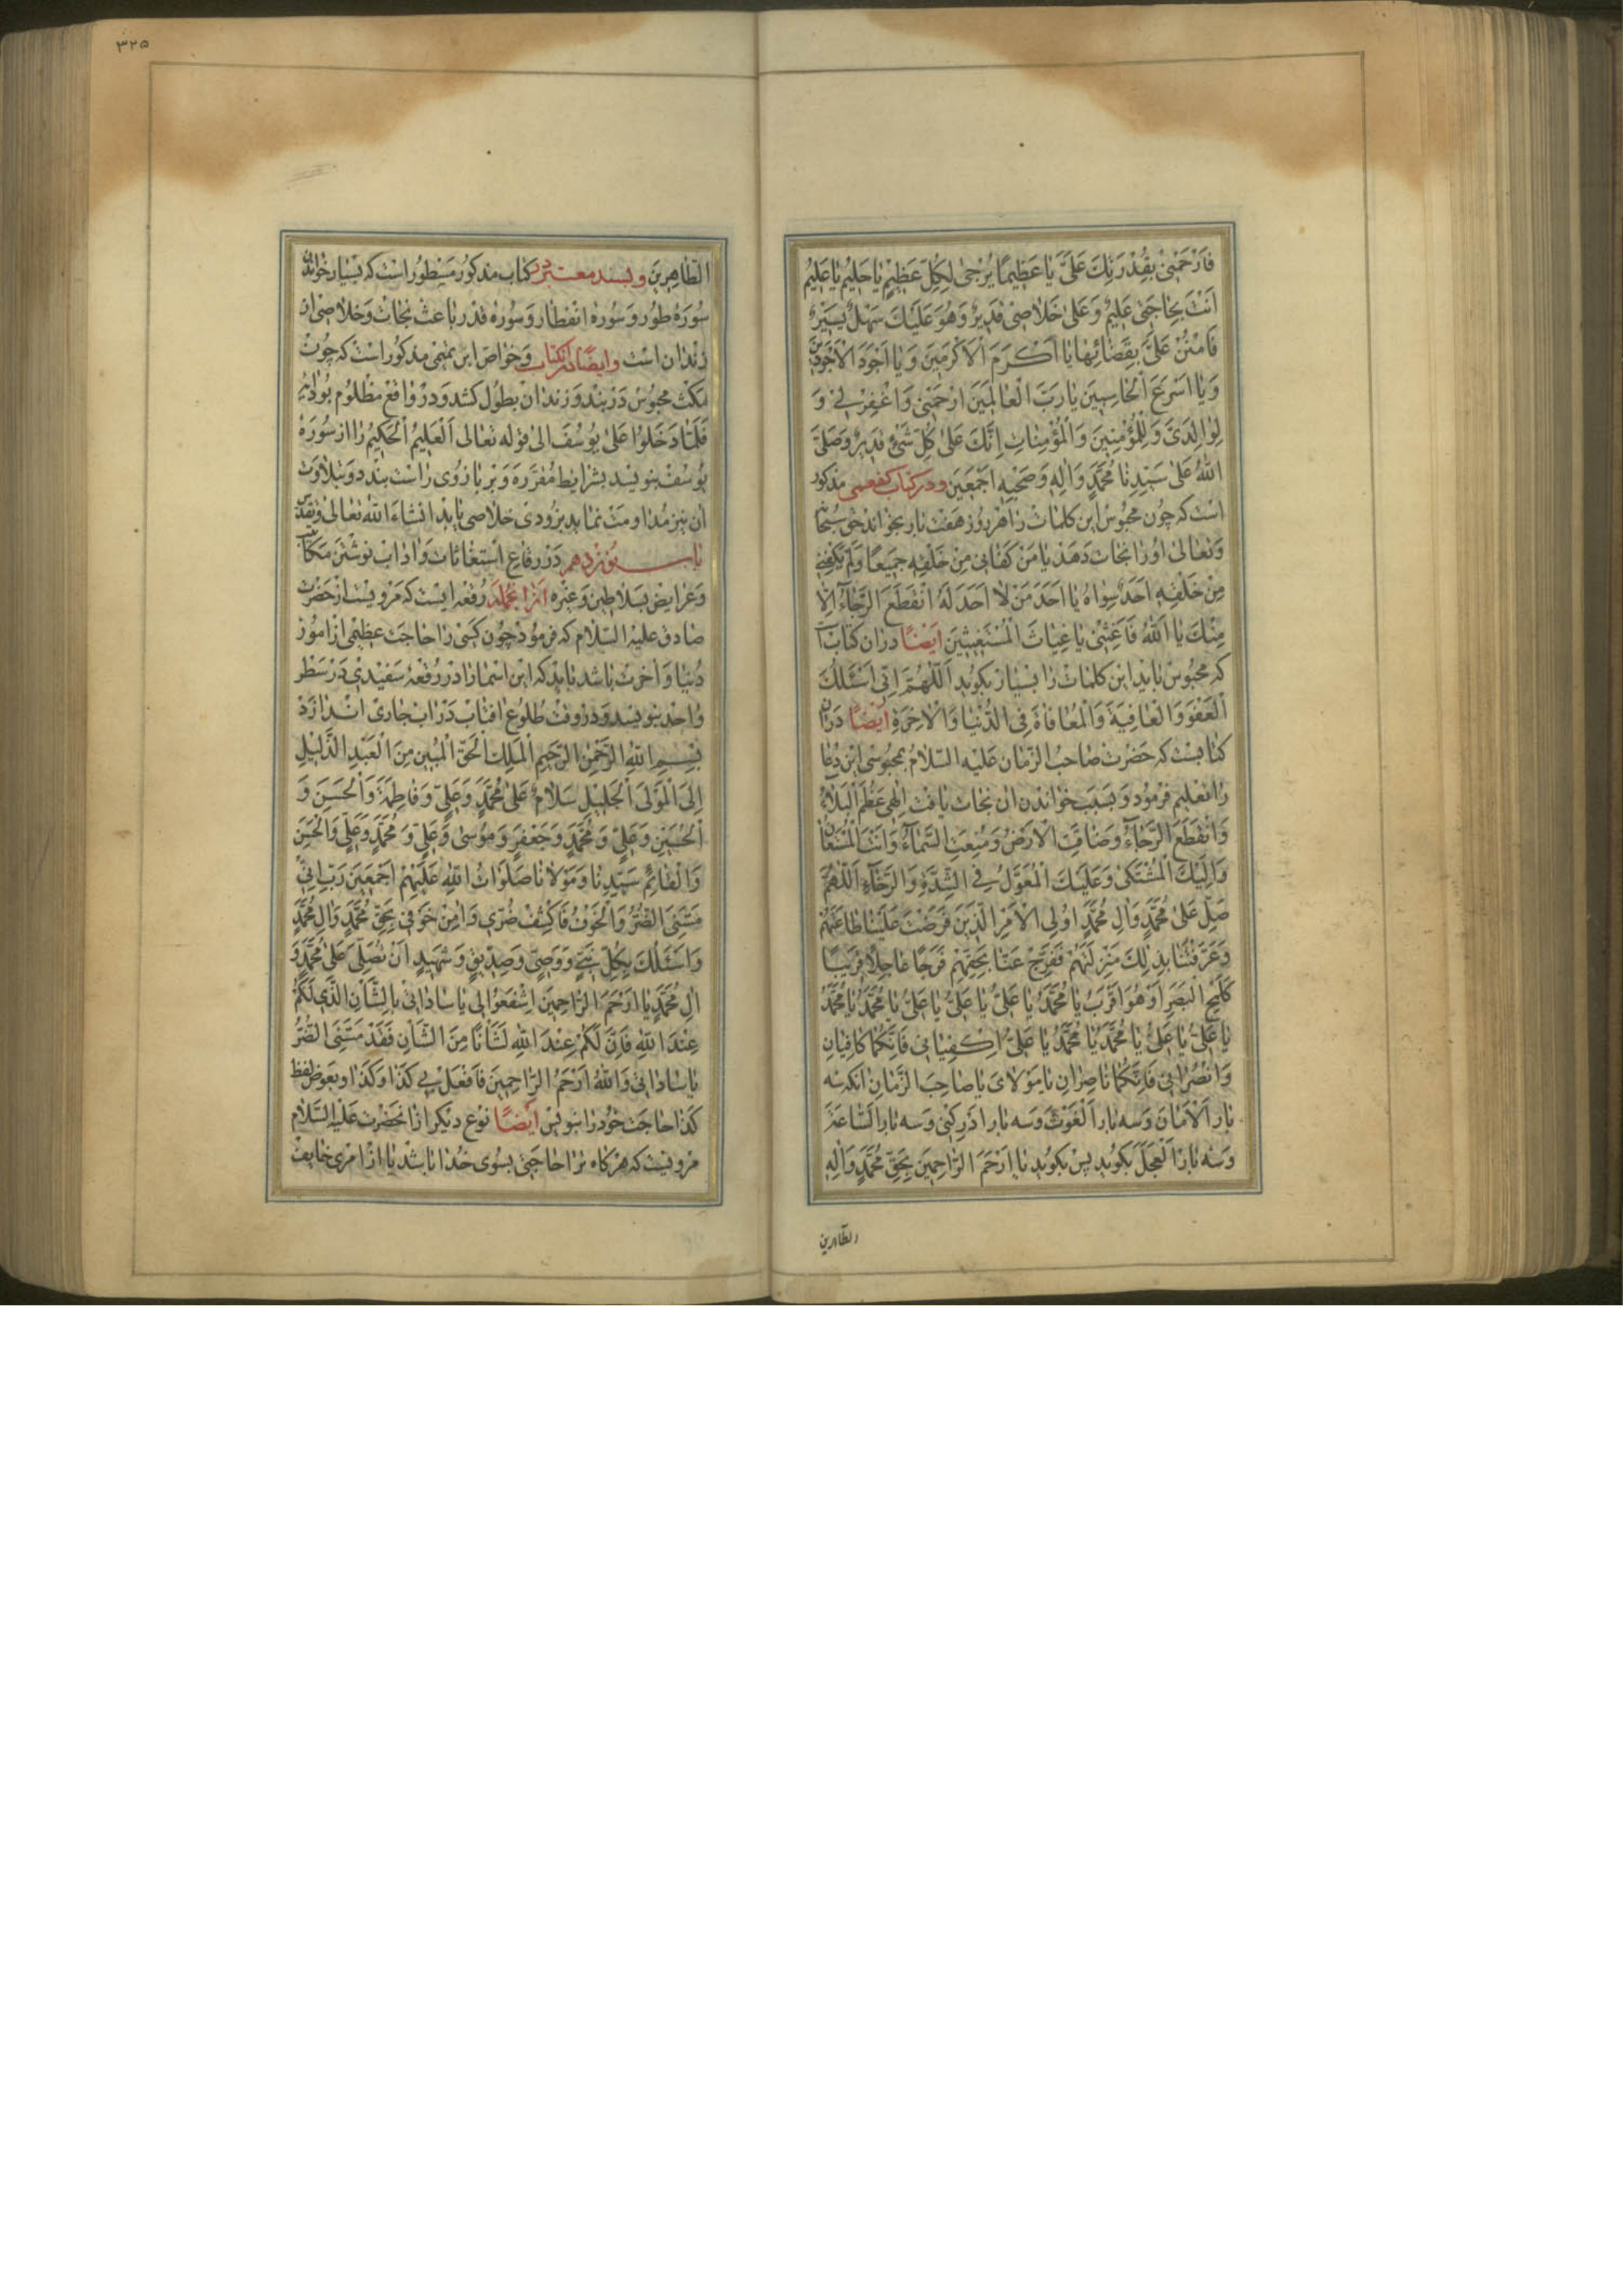 فَارْحَمْنِی بِقُدْرَتِكَ عَلَیَّ یَا عَظِیمًا یُرْجیٰ لِكُلِّ عَظِیمٍ یَا حَلِیمُ یَا عَلِیمُ
اَنْتَ بِحَاجَتِی عَلِیمٌ وَعَلیٰ خَلَاصِی قَدِیرٌ وَهُوَ عَلَیْكَ سَهْلٌ یَسِیرٌ
فَامْنُنْ عَلَیَّ بِقَضَائِهَا یَا اَكْرَمَ الْاَكْرَمِینَ وَیَا اَجْوَدَ الْاَجْوَدِینَ
وَیَا اَسْرَعَ الْحَاسِبِینَ یَا رَبَّ الْعَالَمِینَ ارْحَمْنِی وَاغْفِرْ لِی وَ
لِوَالِدَیَّ وَلِلْمُؤْمِنِینَ وَالْمُؤْمِنَاتِ اِنَّكَ عَلیٰ كُلِّ شَیْءٍ قَدِیرٌ وَصَلَّی
اللّٰهُ عَلیٰ سَیِّدِنَا مُحَمَّدٍ وَاٰلِهِ وَصَحْبِهِ اَجْمَعِینَ و در کتاب کفعمی مذکور
است که چون محبوس این کلمات را هر روز هفت بار بخواند حق سبحانه
وتعالیٰ او را نجات دهد یَا مَنْ كَفَانِی مِنْ خَلْقِهِ جَمِیعًا وَلَمْ یَكْفِنِی
مِنْ خَلْقِهِ اَحَدٌ سِوَاهُ یَا اَحَدَ مَنْ لَا اَحَدَ لَهُ انْقَطَعَ الرَّجَاءُ اِلَّا
مِنْكَ یَا اَللّٰهُ فَاَغِثْنِی یَا غِیَاثَ الْمُسْتَغِیثِینَ ایضًا در ان کتاب است
که محبوس باید این کلمات را بسیار بگوید اَللّٰهُمَّ اِنِّی اَسْئَلُكَ
الْعَفْوَ وَالْعَافِیَةَ وَالْمُعَافَاةَ فِی الدُّنْیَا وَالْاٰخِرَةِ ایضًا در ان
کتابست که حضرت صاحب الزمان علیه السلام بمحبوسی این دعا
را تعلیم فرمود و بسبب خواندن ان نجات یافت اِلٰهِی عَظُمَ الْبَلَاءُ
وَانْقَطَعَ الرَّجَاءُ وَضَاقَتِ الْاَرْضُ وَمُنِعَتِ السَّمَاءُ وَاَنْتَ الْمُسْتَعَانُ
وَاِلَیْكَ الْمُشْتَكیٰ وَعَلَیْكَ الْمُعَوَّلُ فِی الشِّدَّةِ وَالرَّخَاءِ اَللّٰهُمَّ
صَلِّ عَلیٰ مُحَمَّدٍ وَاٰلِ مُحَمَّدٍ اُولِی الْاَمْرِ الَّذِینَ فَرَضْتَ عَلَیْنَا طَاعَتَهُمْ
وَعَرَّفْتَنَا بِذٰلِكَ مَنْزِلَتَهُمْ فَفَرِّجْ عَنَّا بِحَقِّهِمْ فَرَجًا عَاجِلًا قَرِیبًا
كَلَمْحِ الْبَصَرِ اَوْ هُوَ اَقْرَبُ یَا مُحَمَّدُ یَا عَلِیُّ یَا عَلِیُّ یَا عَلِیُّ یَا مُحَمَّدُ یَا مُحَمَّدُ
یَا عَلِیُّ یَا عَلِیُّ یَا مُحَمَّدُ یَا مُحَمَّدُ یَا عَلِیُّ اِكْفِیَانِی فَاِنَّكُمَا كَافِیَانِ
وَانْصُرَانِی فَاِنَّكُمَا نَاصِرَانِ یَا مَوْلَایَ یَا صَاحِبَ الزَّمَانِ انکه سه
بار اَلْاَمَانَ وسه بار اَلْغَوْثَ وسه بار اَدْرِكْنِی وسه بار اَلسَّاعَةَ
وسه بار اَلْعَجَلَ بکوید پس بکوید یَا اَرْحَمَ الرَّاحِمِینَ بِحَقِّ مُحَمَّدٍ وَاٰلِهِ
الطاهرین
۳۲۵
الطَّاهِرِینَ وبسند معتبر در کتاب مذکور مسطور است که بسیار خواندن
سورهٔ طور وسورهٔ انفطار وسورهٔ قدر باعث نجات وخلاصی از
زندان است وایضًا در انکتاب وخواص ابن تمیمی مذکور است که چون
مکث محبوس در بند وزندان بطول کشد ودر واقع مظلوم بود ایهٔ
فَلَمَّا دَخَلُوا عَلیٰ یُوسُفَ الی قوله تعالی اَلْعَلِیمُ الْحَكِیمُ را از سورهٔ
یوسف بنویسد بشرایط مقرره وبر بازوی راست بندد وبتلاوت
ان نیز مداومت نماید بزودی خلاصی یابد انشاء الله تعالی وتقدس
باب نوزدهم در رقاع استغاثات واداب نوشتن مکاتیب
وعرایض بسلاطین وغیره از انجمله رقعه ایست که مرویست از حضرت
صادق علیه السلام که فرمود چون کسی را حاجت عظیمی از امور
دنیا واخرت باشد باید که این اسما را در رقعهٔ سفیدی در سطر
واحد بنویسد ودر وقت طلوع افتاب در اب جاری اندازد
بِسْمِ اللّٰهِ الرَّحْمٰنِ الرَّحِیمِ الْمَلِكِ الْحَقِّ الْمُبِینِ مِنَ الْعَبْدِ الذَّلِیلِ
اِلَی الْمَوْلَی الْجَلِیلِ سَلَامٌ عَلیٰ مُحَمَّدٍ وَعَلِیٍّ وَفَاطِمَةَ وَالْحَسَنِ وَ
الْحُسَیْنِ وَعَلِیٍّ وَمُحَمَّدٍ وَجَعْفَرٍ وَمُوسیٰ وَعَلِیٍّ وَمُحَمَّدٍ وَعَلِیٍّ وَالْحَسَنِ
وَالْقَائِمِ سَیِّدِنَا وَمَوْلَانَا صَلَوَاتُ اللّٰهِ عَلَیْهِمْ اَجْمَعِینَ رَبِّ اِنِّی
مَسَّنِیَ الضُّرُّ وَالْخَوْفُ فَاكْشِفْ ضُرِّی وَاٰمِنْ خَوْفِی بِحَقِّ مُحَمَّدٍ وَاٰلِ مُحَمَّدٍ
وَاَسْئَلُكَ بِكُلِّ نَبِیٍّ وَوَصِیٍّ وَصِدِّیقٍ وَشَهِیدٍ اَنْ تُصَلِّیَ عَلیٰ مُحَمَّدٍ وَ
اٰلِ مُحَمَّدٍ یَا اَرْحَمَ الرَّاحِمِینَ اِشْفَعُوا لِی یَا سَادَاتِی بِالشَّاْنِ الَّذِی لَكُمْ
عِنْدَ اللّٰهِ فَاِنَّ لَكُمْ عِنْدَ اللّٰهِ لَشَاْنًا مِنَ الشَّاْنِ فَقَدْ مَسَّنِیَ الضُّرُّ
یَا سَادَاتِی وَاللّٰهُ اَرْحَمُ الرَّاحِمِینَ فَافْعَلْ بِی كَذَا وَكَذَا وبعوض لفظ
كذا حاجت خود را بنویس ایضًا نوع دیکر از انحضرت علیه السلام
مرویست که هرکاه ترا حاجتی بسوی خدا باشد یا از امری خایف